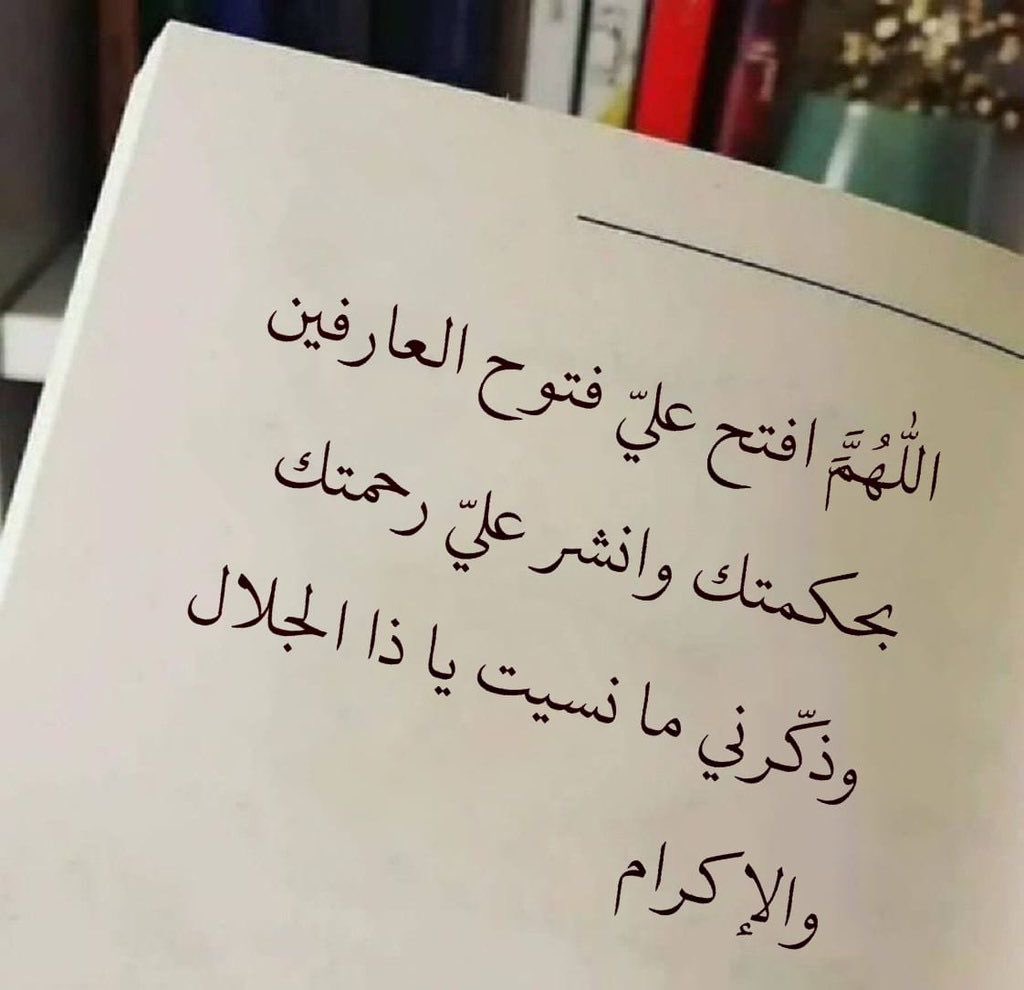 اللّٰهُمَّ افتح عليّ فتوح العارفين
بحكمتك وانشر عليّ رحمتك
وذكّرني ما نسيت يا ذا الجلال
والإكرام